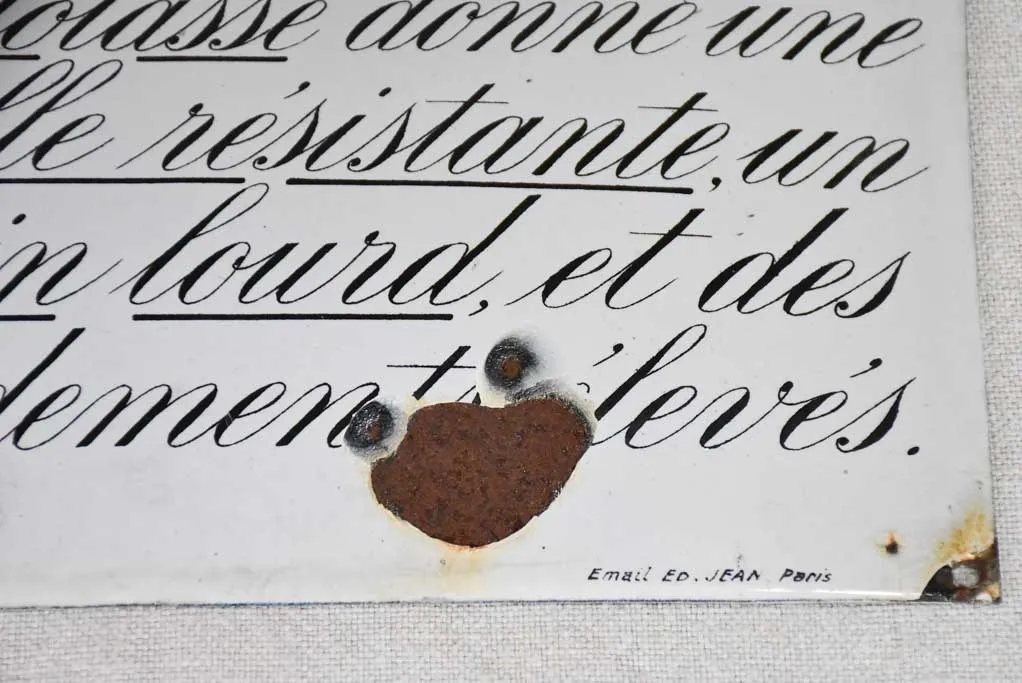 otasse donne une
lle résistante, un
in lourd, et des
dements élevés.
Email ED. JEAN Paris